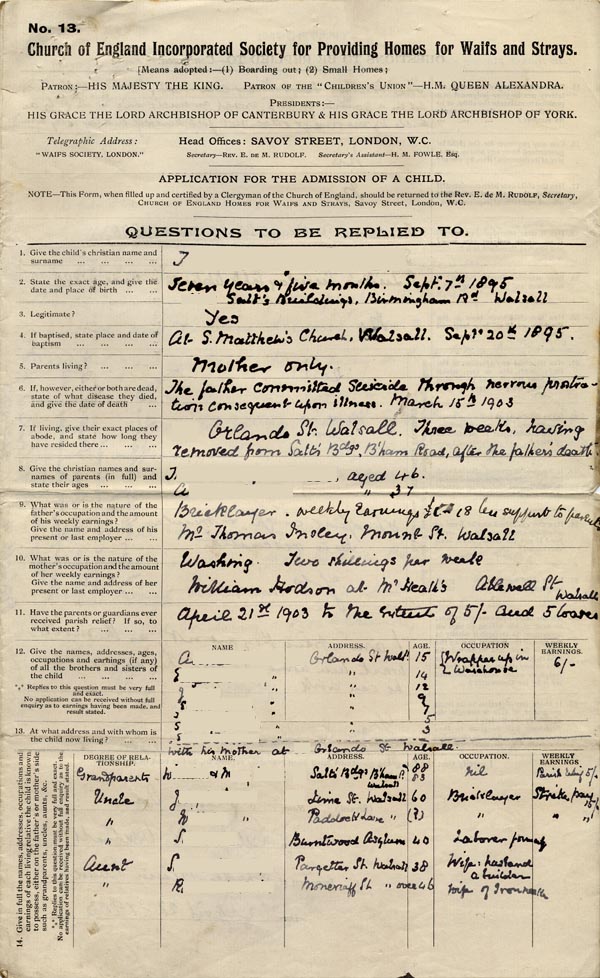 No. 13.
Church of England Incorporated Society for Providing Homes for Waifs and Strays.
[Means adopted:—(1) Boarding out; (2) Small Homes;
Patron:—HIS MAJESTY THE KING. Patron of the "Children's Union"—H.M. QUEEN ALEXANDRA.
Presidents:—
HIS GRACE THE LORD ARCHBISHOP OF CANTERBURY & HIS GRACE THE LORD ARCHBISHOP OF YORK.
Telegraphic Address: Head Offices: SAVOY STREET, LONDON, W.C.
"WAIFS SOCIETY, LONDON." Secretary—Rev. E. de M. RUDOLF. Secretary's Assistant—H. M. FOWLE, Esq.
APPLICATION FOR THE ADMISSION OF A CHILD.
NOTE—This Form, when filled up and certified by a Clergyman of the Church of England, should be returned to the Rev. E. de M. Rudolf, Secretary,
Church of England Homes for Waifs and Strays, Savoy Street, London, W.C.
QUESTIONS TO BE REPLIED TO.
1. Give the child's christian name and surname ... ... ... ...
J
2. State the exact age, and give the date and place of birth ... ... ...
Seven years & five months. Sept. 7th 1895
Salt's Buildings, Birmingham Rd Walsall
3. Legitimate?
Yes
4. If baptised, state place and date of baptism ... ... ... ...
At S. Matthew's Church, Walsall. Sept. 20th 1895.
5. Parents living? ... ... ...
Mother only.
6. If, however, either or both are dead, state of what disease they died, and give the date of death ...
The father committed Suicide through nervous prostra-
tion consequent upon illness. March 15th 1903
7. If living, give their exact places of abode, and state how long they have resided there ... ... ...
Orlando St. Walsall. Three weeks, having
removed from Salt's Bdgs, B'ham Road, after the father's death
8. Give the christian names and surnames of parents (in full) and state their ages ... ... ...
J. , aged 46.
A " 37
9. What was or is the nature of the father's occupation and the amount of his weekly earnings?
Give the name and address of his present or last employer ... ...
Bricklayer. Weekly Earnings 18 support to
Mr Thomas Insley, Mount St. Walsall
10. What was or is the nature of the mother's occupation and the amount of her weekly earnings?
Give the name and address of her present or last employer ... ...
Washing. Two shillings per week
William Hodson at Mr Heath's Ablewell St
Walsall
11. Have the parents or guardians ever received parish relief? If so, to what extent? ... ... ...
April 21st 1903 to the extent of 5/- and 5 loaves
12. Give the names, addresses, ages, occupations and earnings (if any) of all the brothers and sisters of the child ... ... ... ...
*** Replies to this question must be very full and exact.
No application can be received without full enquiry as to earnings having been made, and result stated.
NAME ADDRESS. AGE. OCCUPATION WEEKLY EARNINGS.
A. Orlando St Wals. 15 Wrapper up in Warehouse 6/-
E " " 14
" " 12
" " 9
" " 7
S " " 5
" " 3
13. At what address and with whom is the child now living? ... ...
With his mother at Orlando St Walsall.
14. Give in full the names, addresses, occupations and earnings of each living relative the child is known to possess, either on the father's or mother's side such as grandparents, uncles, aunts, &c.
*** Replies to this question must be very full and exact.
No application can be received without full enquiry as to the earnings of relatives having been made, and result stated.
DEGREE OF RELATIONSHIP. NAME. ADDRESS. AGE. OCCUPATION. WEEKLY EARNINGS
Grandparents W & M Salt's Bdgs B'ham Rd Walsall 88 83 nil Parish 5/-
Uncle J. Lime St. Walsall 60 Bricklayer Strike pay
" Paddock Lane " (?) " "
" S. Burntwood Asylum 40 Laborer
Aunt S. Pargetter St Walsall 38 Wife: husband a builder
" R. Moncrieff St " over 46 Wife of